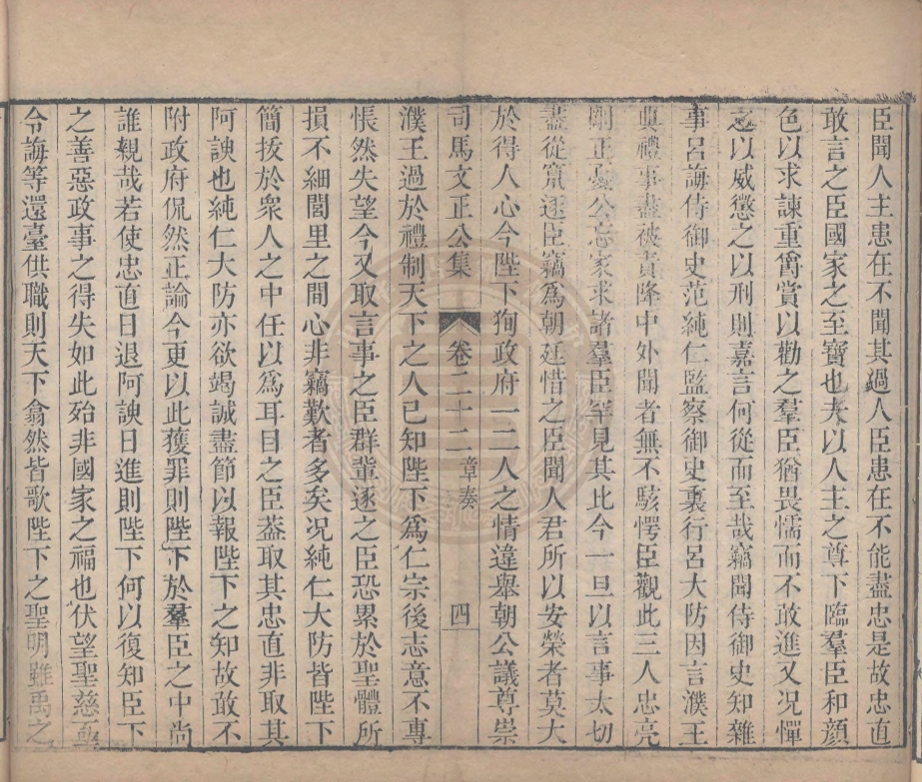 臣聞人主患在不聞其過人臣患在不能盡忠是故忠直
敢言之臣國家之至寶也夫以人主之尊下臨羣臣和顏
色以求諫重爵賞以勸之羣臣猶畏懦而不敢進又况憚
之以威懲之以刑則嘉言何從而至哉竊聞侍御史知雜
事呂誨侍御史范純仁監察御史裏行呂大防因言濮王
典禮事盡被責降中外聞者無不駭愕臣觀此三人忠亮
剛正憂公忘家求諸羣臣罕見其比今一旦以言事太切
盡從竄逐臣竊爲朝廷惜之臣聞人君所以安榮者莫大
於得人心今陛下狥政府一二人之情違舉朝公議尊崇
司馬文正公集 卷二十二 章奏 四
濮王過於禮制天下之人已知陛下爲仁宗後志意不專
悵然失望今又取言事之臣群輩逐之臣恐累於聖體所
損不細閭里之間心非竊歎者多矣况純仁大防皆陛下
簡拔於衆人之中任以爲耳目之臣葢取其忠直非取其
阿諛也純仁大防亦欲竭誠盡節以報陛下之知故敢不
附政府侃然正論今更以此獲罪則陛下於羣臣之中尚
誰親哉若使忠直日退阿諛日進則陛下何以復知臣下
之善惡政事之得失如此殆非國家之福也伏望聖慈亟
令誨等還臺供職則天下翕然皆歌陛下之聖明雖禹之